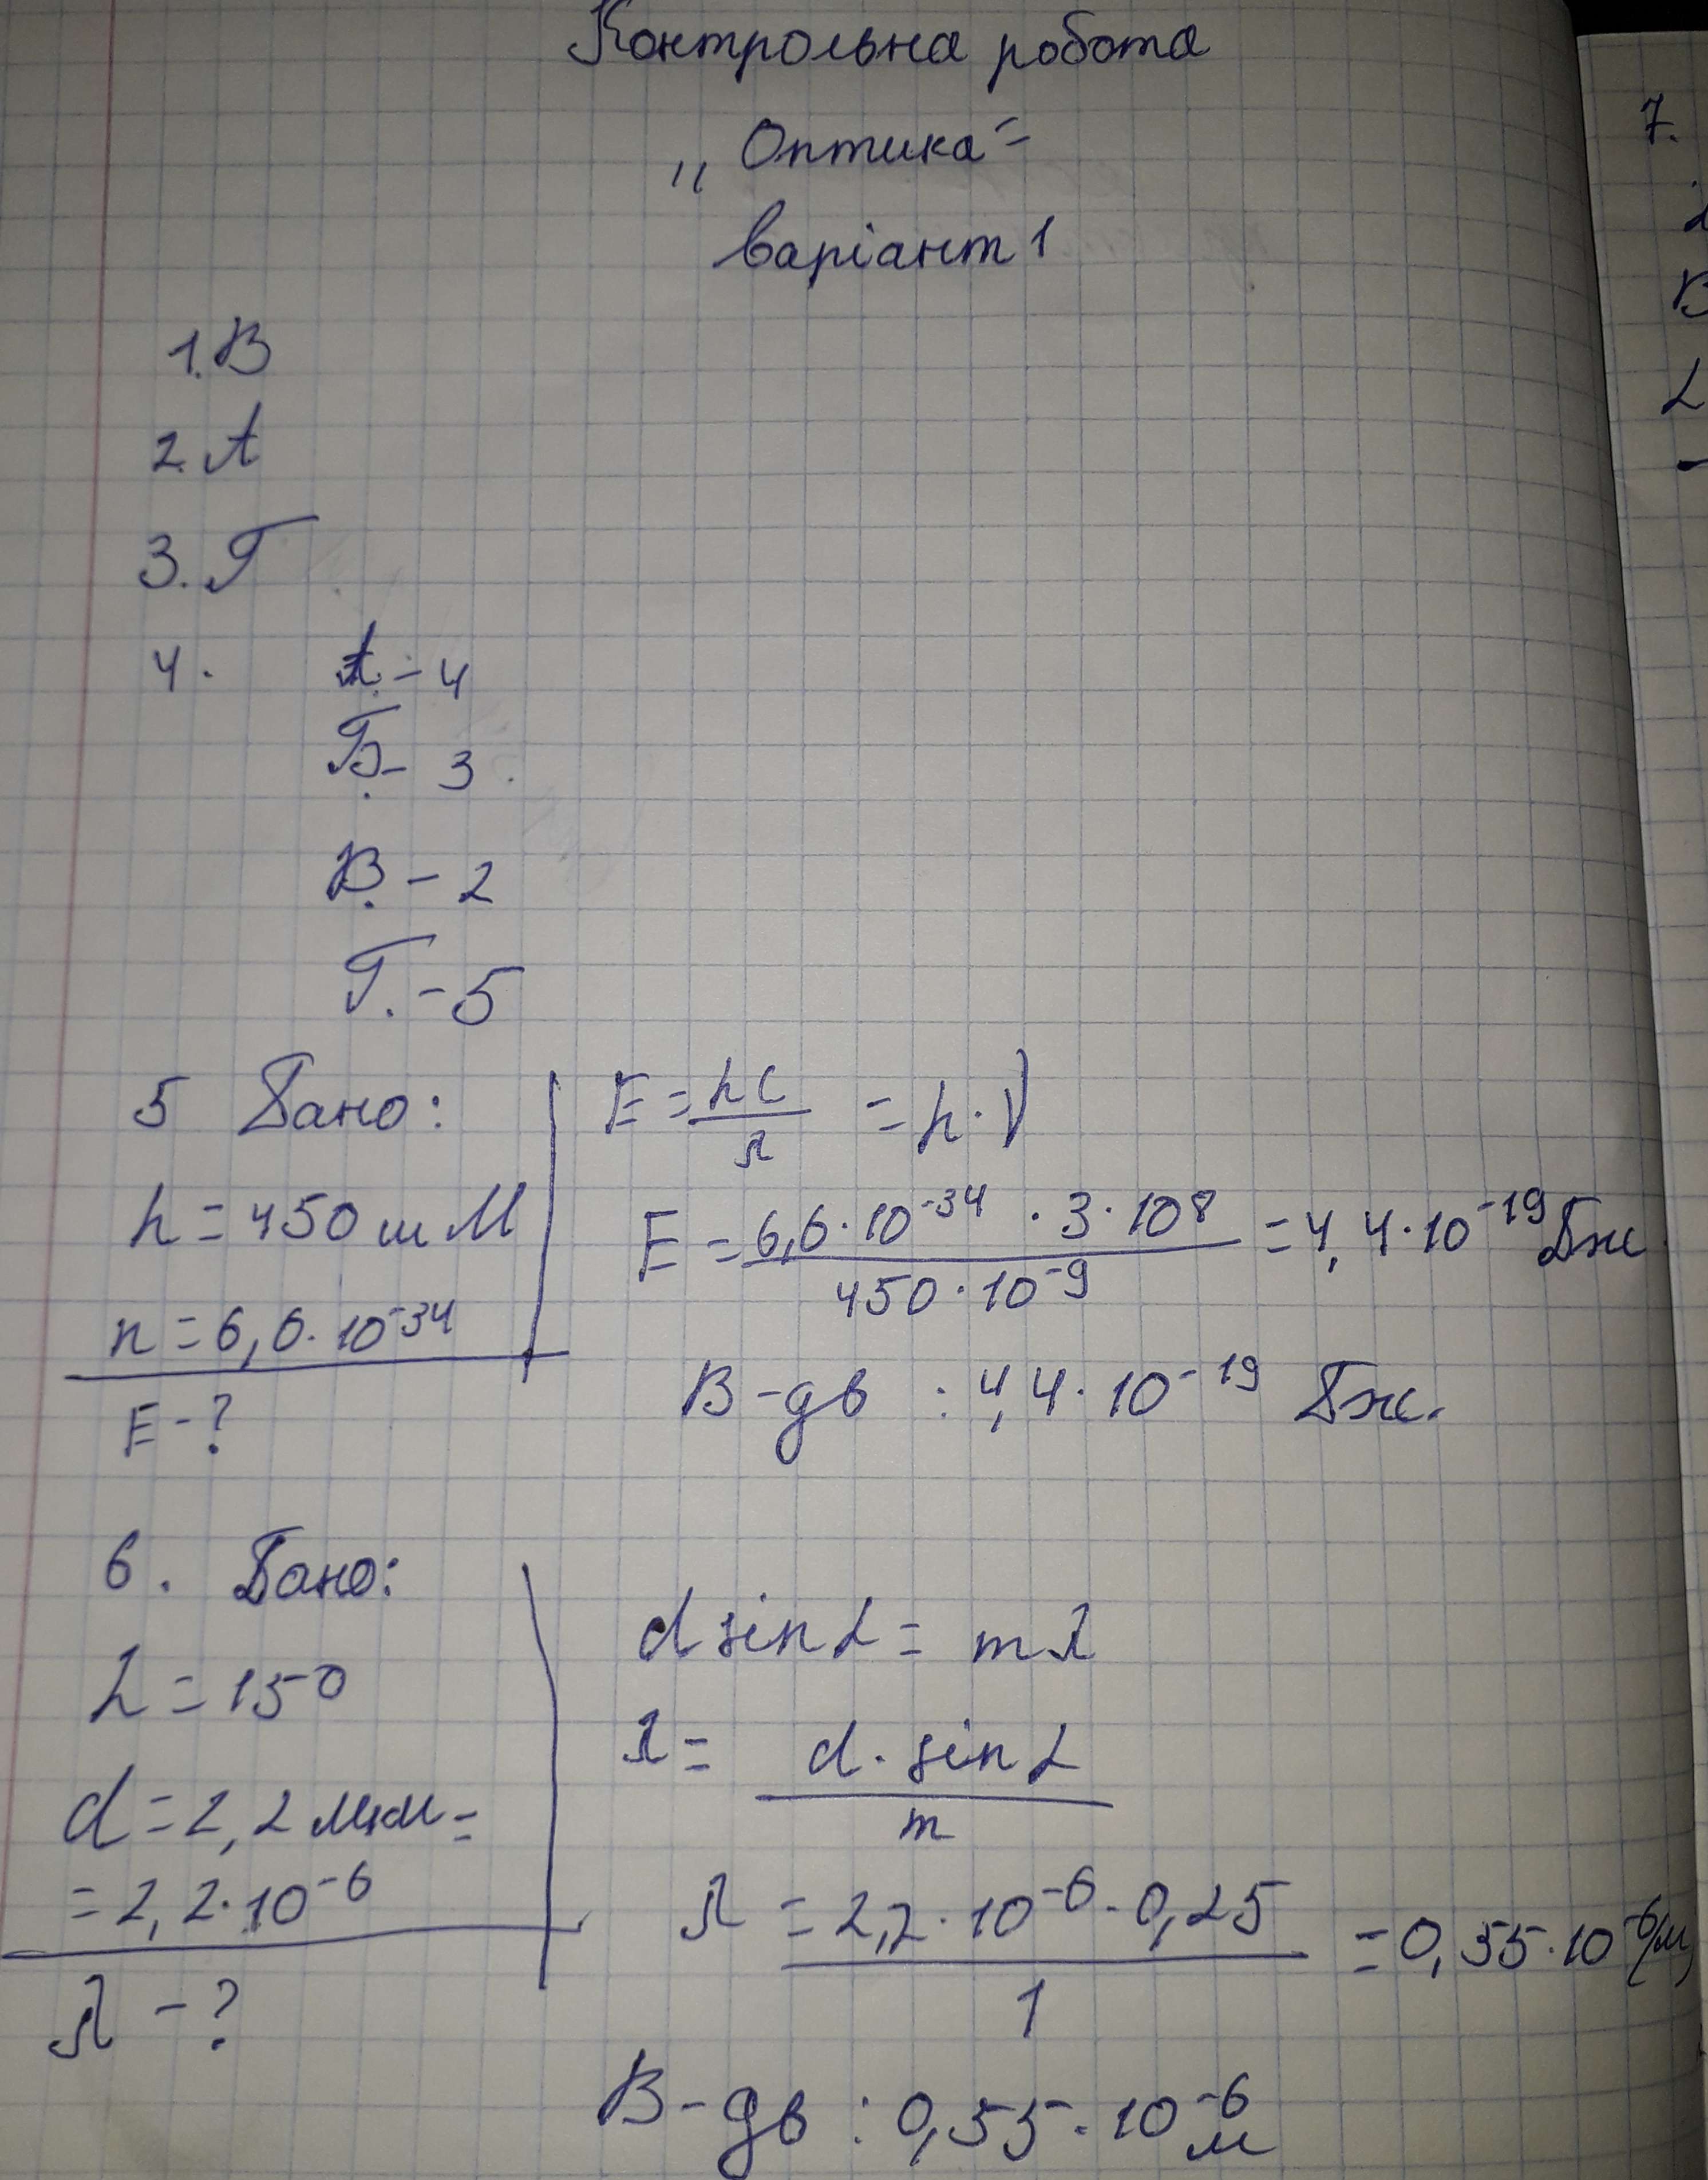 Контрольна робота
„Оптика"
варіант 1
1. В
2. А
3. Г
4. А. - 4
Б. - 3
В. - 2
Г. - 5
5 Дано:
h = 450 нм
n = 6,6 · 10⁻³⁴
E - ?
E = hc / λ = h · ν
E = 6,6 · 10⁻³⁴ · 3 · 10⁸ / 450 · 10⁻⁹ = 4,4 · 10⁻¹⁹ Дж
В-дв : 4,4 · 10⁻¹⁹ Дж.
6. Дано:
L = 15⁰
d = 2,2 мкм =
= 2,2 · 10⁻⁶
λ - ?
d sin L = m λ
λ = d · sin L / m
λ = 2,2 · 10⁻⁶ · 0,25 / 1 = 0,55 · 10⁻⁶ (м)
В-дв : 0,55 · 10⁻⁶ м
7.